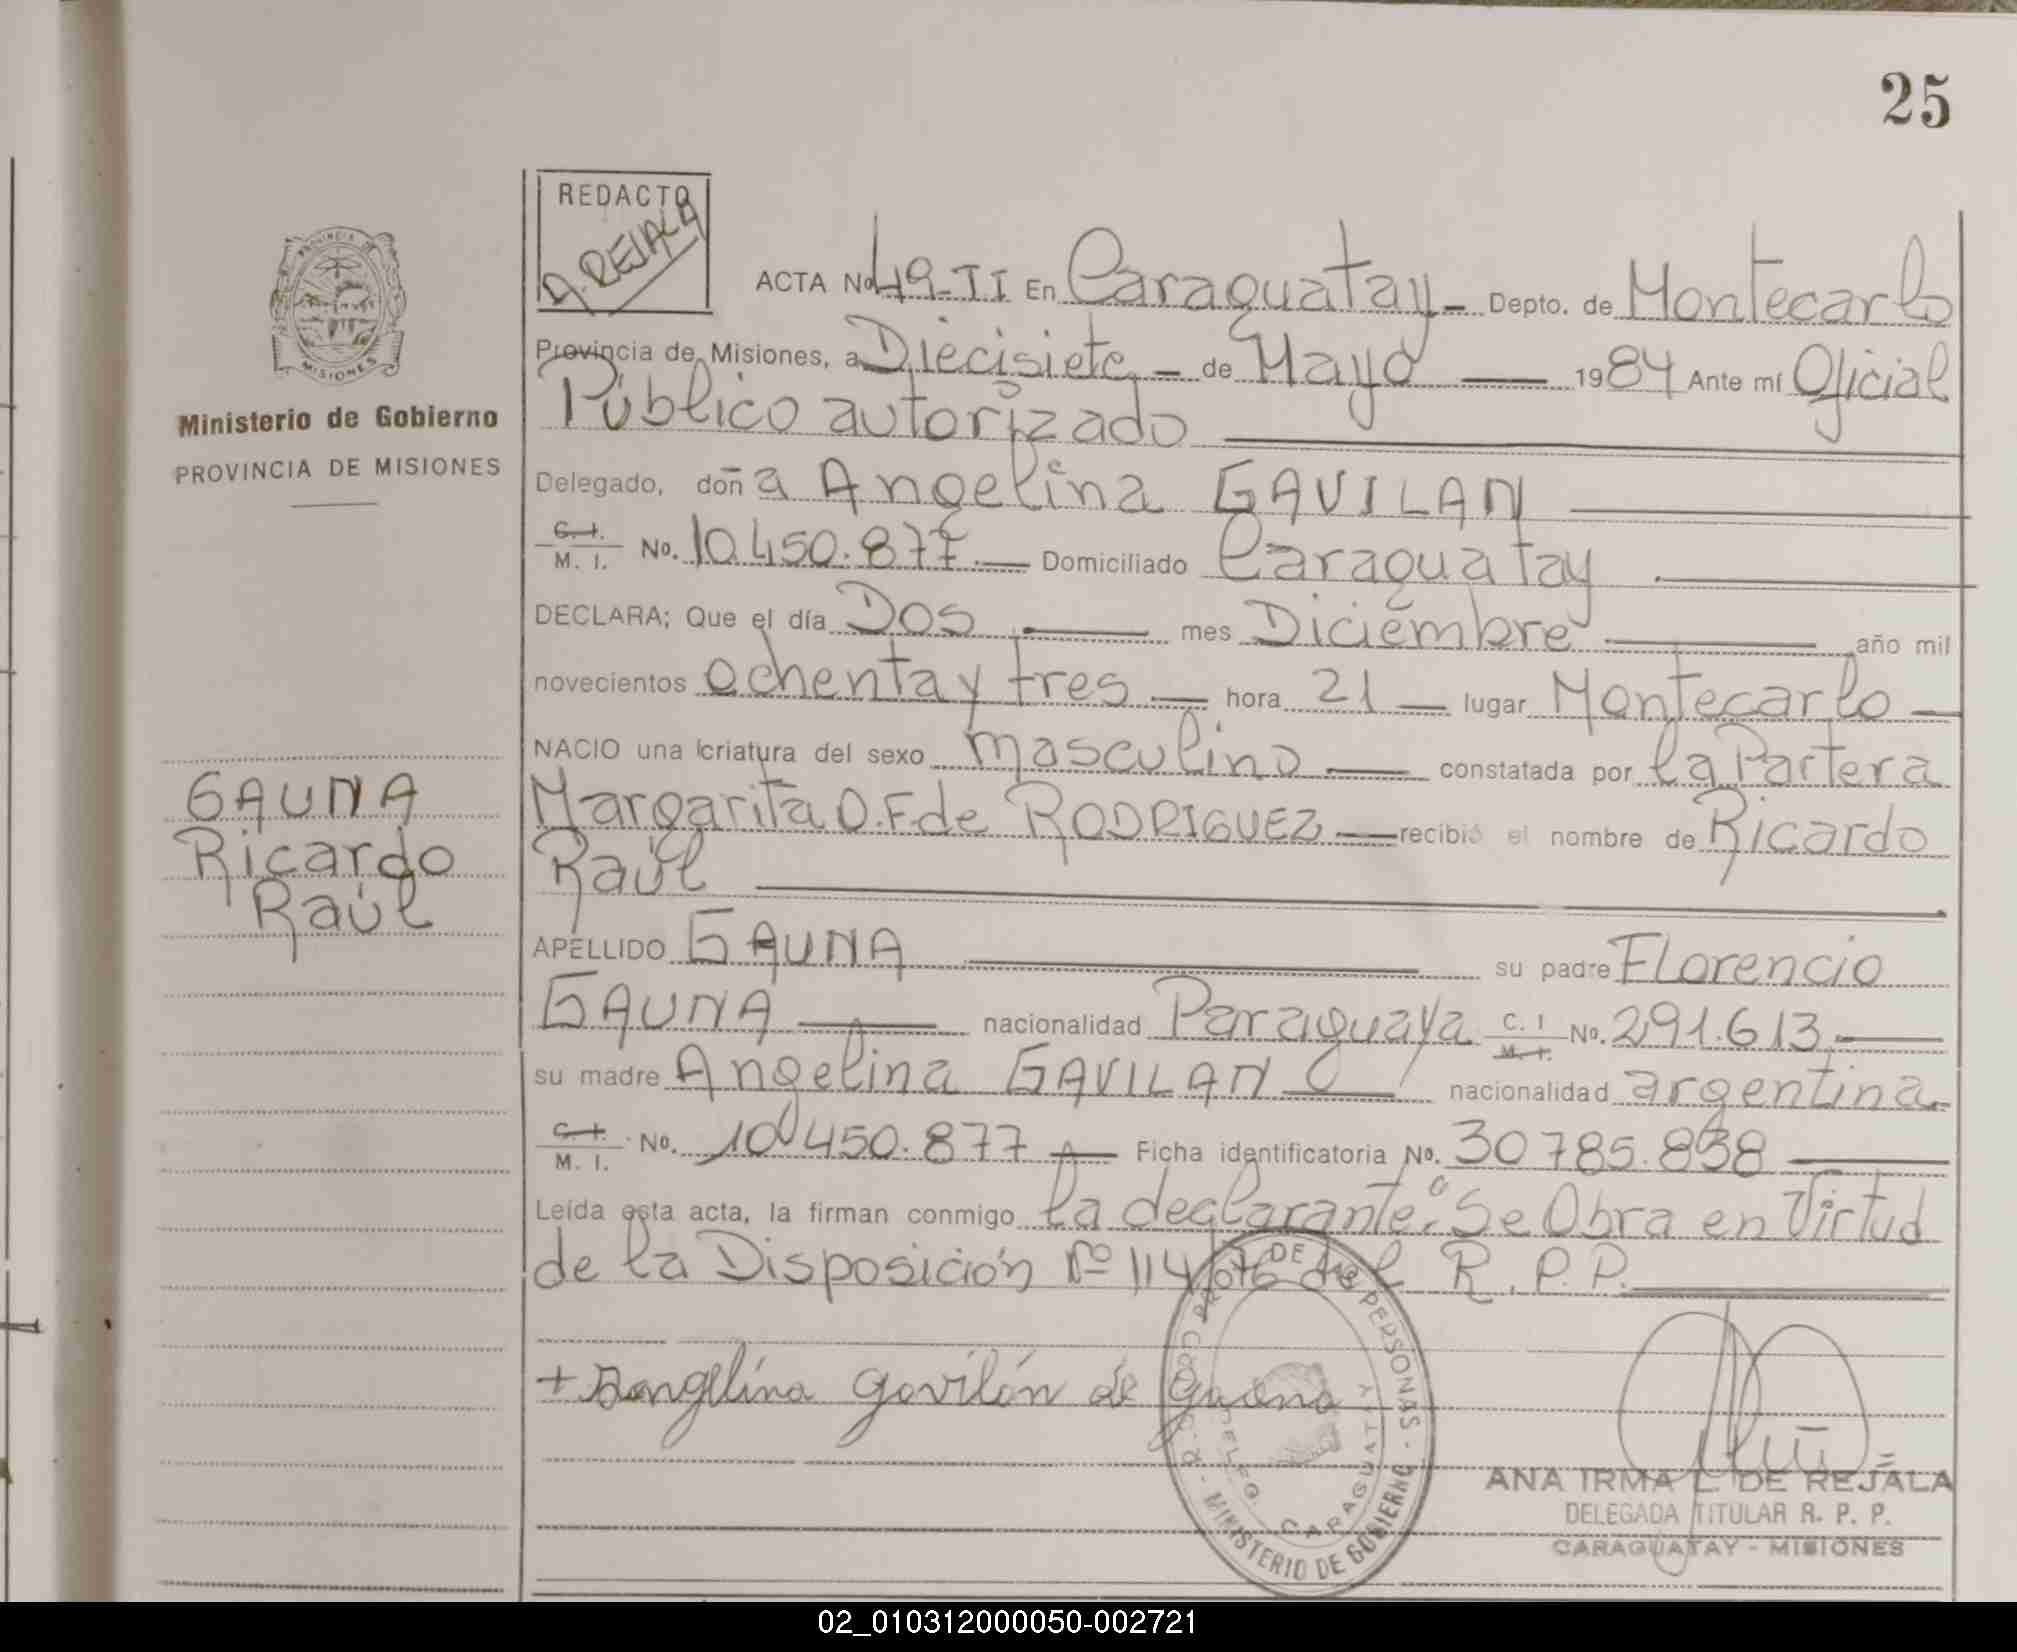 25
REDACTO
A. REJALA
PROVINCIA DE
MISIONES
Ministerio de Gobierno
PROVINCIA DE MISIONES
GAUNA
Ricardo
Raúl
ACTA No 49-II En Caraguatay - Depto. de Montecarlo
Provincia de Misiones, a Diecisiete - de Mayo — 1984 Ante mí Oficial
Público autorizado
Delegado, doña Angelina GAVILAN
C. I. M. I. No. 10.450.877 — Domiciliado Caraguatay
DECLARA; Que el día Dos — mes Diciembre — año mil
novecientos ochenta y tres — hora 21 — lugar Montecarlo —
NACIO una criatura del sexo masculino — constatada por la Partera
Margarita O.F. de RODRIGUEZ — recibió el nombre de Ricardo
Raúl
APELLIDO GAUNA — su padre Florencio
GAUNA — nacionalidad Paraguaya C. I M. I. No. 291.613 —
su madre Angelina GAVILAN — nacionalidad argentina
C. I. M. I. No. 10.450.877 — Ficha identificatoria No. 30785.838 —
Leída esta acta, la firman conmigo la declarante. "Se Obra en Virtud
de la Disposición Nº 114/076 del R.P.P.
+ Angelina gavilán de gauna
DE LAS PERSONAS - MINISTERIO DE GOBIERNO
DELEG. CARAGUATAY
ANA IRMA L. DE REJALA
DELEGADA TITULAR R. P. P.
CARAGUATAY - MISIONES
02_010312000050-002721